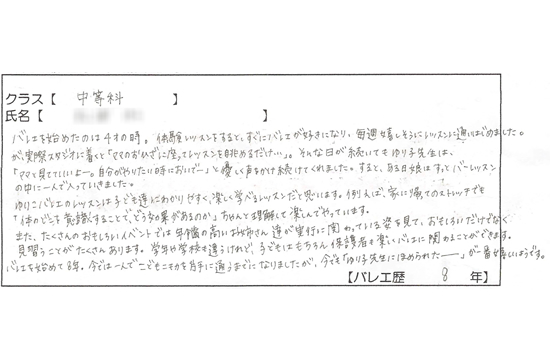 クラス【 中等科 】
氏名【 】
バレエを始めたのは4才の時。体験レッスンをすると、すぐにバレエが好きになり、毎週嬉しそうにレッスンに通いはじめました。
が、実際スタジオに着くと「ママのおひざに座ってレッスンを眺めるだけ…」。そんな日が続いてもゆり子先生は、
「ママと見てていいよー。自分がやりたい時においでー」と優しく声をかけ続けてくれました。すると、ある日娘はすっとバーレッスン
の中に一人で入っていきました。
ゆりこバレエのレッスンは子ども達にわかりやすく、楽しく学べるレッスンだと思います。例えば、家に帰ってのストレッチでも
「体のどこを意識することで、どう効果があるのか」ちゃんと理解して楽しんでやっています。
また、たくさんのおもしろいイベントでは年齢の高いお姉さん達が実行に関わっている姿を見て、おもしろいだけでなく
見習うことがたくさんあります。学年や学校も違うけれど、子どもはもちろん保護者も楽しくバレエに関わることができます。
バレエを始めて8年。今では一人でこどもニモカを片手に通うまでになりましたが、今でも「ゆり子先生にほめられたー」が一番嬉しいようです。
【バレエ歴 8 年】